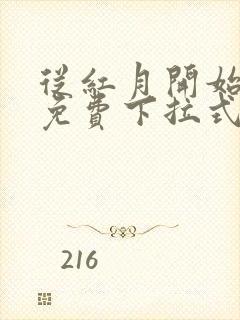 從紅月開始
免費下拉式
216